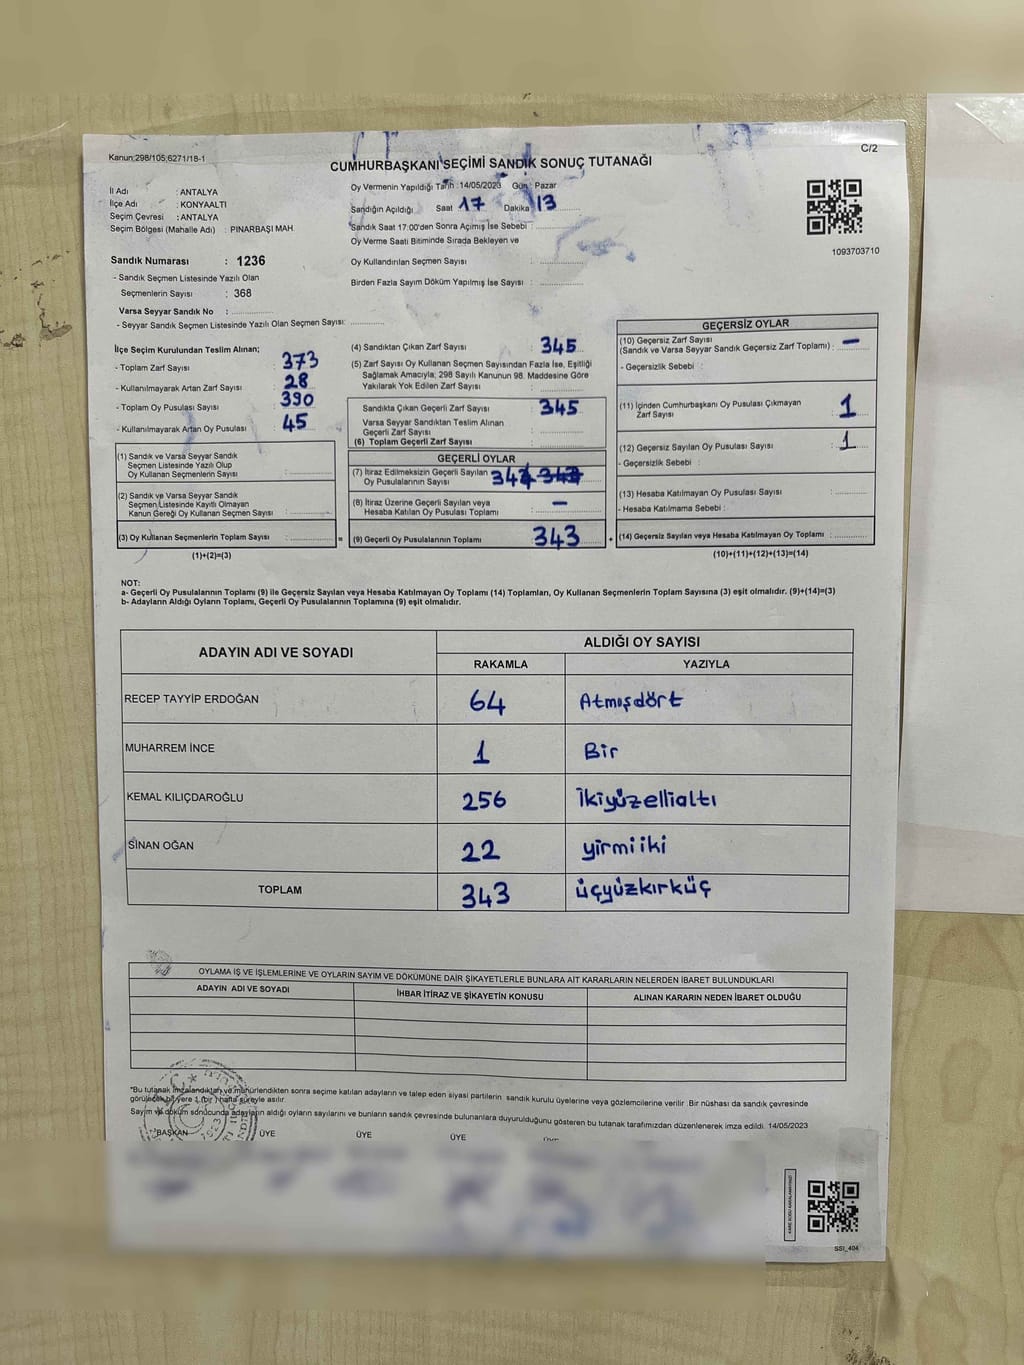 Kanun:298/105;6271/18-1
C/2
CUMHURBAŞKANI SEÇİMİ SANDIK SONUÇ TUTANAĞI
İl Adı : ANTALYA
İlçe Adı : KONYAALTI
Seçim Çevresi : ANTALYA
Seçim Bölgesi (Mahalle Adı) : PINARBAŞI MAH.
Oy Vermenin Yapıldığı Tarih :14/05/2023 Gün : Pazar
Sandığın Açıldığı Saat 17 Dakika 13
Sandık Saat 17:00'den Sonra Açımış İse Sebebi :
Oy Verme Saati Bitiminde Sırada Bekleyen ve
Oy Kullandırılan Seçmen Sayısı :
Birden Fazla Sayım Döküm Yapılmış İse Sayısı :
1093703710
Sandık Numarası : 1236
- Sandık Seçmen Listesinde Yazılı Olan
Seçmenlerin Sayısı : 368
Varsa Seyyar Sandık No :
- Seyyar Sandık Seçmen Listesinde Yazılı Olan Seçmen Sayısı:
İlçe Seçim Kurulundan Teslim Alınan;
- Toplam Zarf Sayısı : 373
- Kullanılmayarak Artan Zarf Sayısı : 28
- Toplam Oy Pusulası Sayısı : 390
- Kullanılmayarak Artan Oy Pusulası : 45
(1) Sandık ve Varsa Seyyar Sandık
Seçmen Listesinde Yazılı Olup
Oy Kullanan Seçmenlerin Sayısı :
(2) Sandık ve Varsa Seyyar Sandık
Seçmen Listesinde Kayıtlı Olmayan
Kanun Gereği Oy Kullanan Seçmen Sayısı :
(3) Oy Kullanan Seçmenlerin Toplam Sayısı :
(1)+(2)=(3)
=
(4) Sandıktan Çıkan Zarf Sayısı : 345
(5) Zarf Sayısı Oy Kullanan Seçmen Sayısından Fazla İse, Eşitliği
Sağlamak Amacıyla; 298 Sayılı Kanunun 98. Maddesine Göre
Yakılarak Yok Edilen Zarf Sayısı :
Sandıkta Çıkan Geçerli Zarf Sayısı : 345
Varsa Seyyar Sandıktan Teslim Alınan
Geçerli Zarf Sayısı :
(6) Toplam Geçerli Zarf Sayısı :
GEÇERLİ OYLAR
(7) İtiraz Edilmeksizin Geçerli Sayılan
Oy Pusulalarının Sayısı :
(8) İtiraz Üzerine Geçerli Sayılan veya
Hesaba Katılan Oy Pusulası Toplamı : –
(9) Geçerli Oy Pusulalarının Toplamı : 343
+
GEÇERSİZ OYLAR
(10) Geçersiz Zarf Sayısı
(Sandık ve Varsa Seyyar Sandık Geçersiz Zarf Toplamı) : –
- Geçersizlik Sebebi :
(11) İçinden Cumhurbaşkanı Oy Pusulası Çıkmayan
Zarf Sayısı : 1
(12) Geçersiz Sayılan Oy Pusulası Sayısı : 1
- Geçersizlik Sebebi :
(13) Hesaba Katılmayan Oy Pusulası Sayısı :
- Hesaba Katılmama Sebebi :
(14) Geçersiz Sayılan veya Hesaba Katılmayan Oy Toplamı :
(10)+(11)+(12)+(13)=(14)
NOT:
a- Geçerli Oy Pusulalarının Toplamı (9) ile Geçersiz Sayılan veya Hesaba Katılmayan Oy Toplamı (14) Toplamları, Oy Kullanan Seçmenlerin Toplam Sayısına (3) eşit olmalıdır. (9)+(14)=(3)
b- Adayların Aldığı Oyların Toplamı, Geçerli Oy Pusulalarının Toplamına (9) eşit olmalıdır.
ADAYIN ADI VE SOYADI ALDIĞI OY SAYISI
RAKAMLA YAZIYLA
RECEP TAYYİP ERDOĞAN 64 Atmışdört
MUHARREM İNCE 1 Bir
KEMAL KILIÇDAROĞLU 256 İkiyüzellialtı
SİNAN OĞAN 22 yirmiiki
TOPLAM 343 üçyüzkırküç
OYLAMA İŞ VE İŞLEMLERİNE VE OYLARIN SAYIM VE DÖKÜMÜNE DAİR ŞİKAYETLERLE BUNLARA AİT KARARLARIN NELERDEN İBARET BULUNDUKLARI
ADAYIN ADI VE SOYADI İHBAR İTİRAZ VE ŞİKAYETİN KONUSU ALINAN KARARIN NEDEN İBARET OLDUĞU
*Bu tutanak imzalandıktan ve mühürlendikten sonra seçime katılan adayların ve talep eden siyasi partilerin sandık kurulu üyelerine veya gözlemcilerine verilir. Bir nüshası da sandık çevresinde
görülecek bir yere 1 (bir ) hafta süreyle asılır.
Sayım ve döküm sonucunda adayların aldığı oyların sayılarını ve bunların sandık çevresinde bulunanlara duyurulduğunu gösteren bu tutanak tarafımızdan düzenlenerek imza edildi. 14/05/2023
BAŞKAN ÜYE ÜYE ÜYE
SSI_404